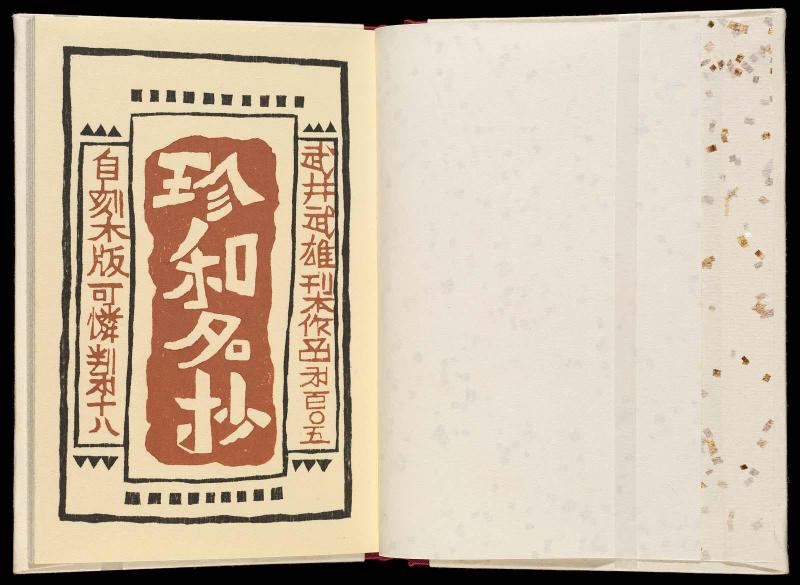 武井武雄刊本作品㐧百〇五
珍和名抄
自刻木版可憐判㐧十八